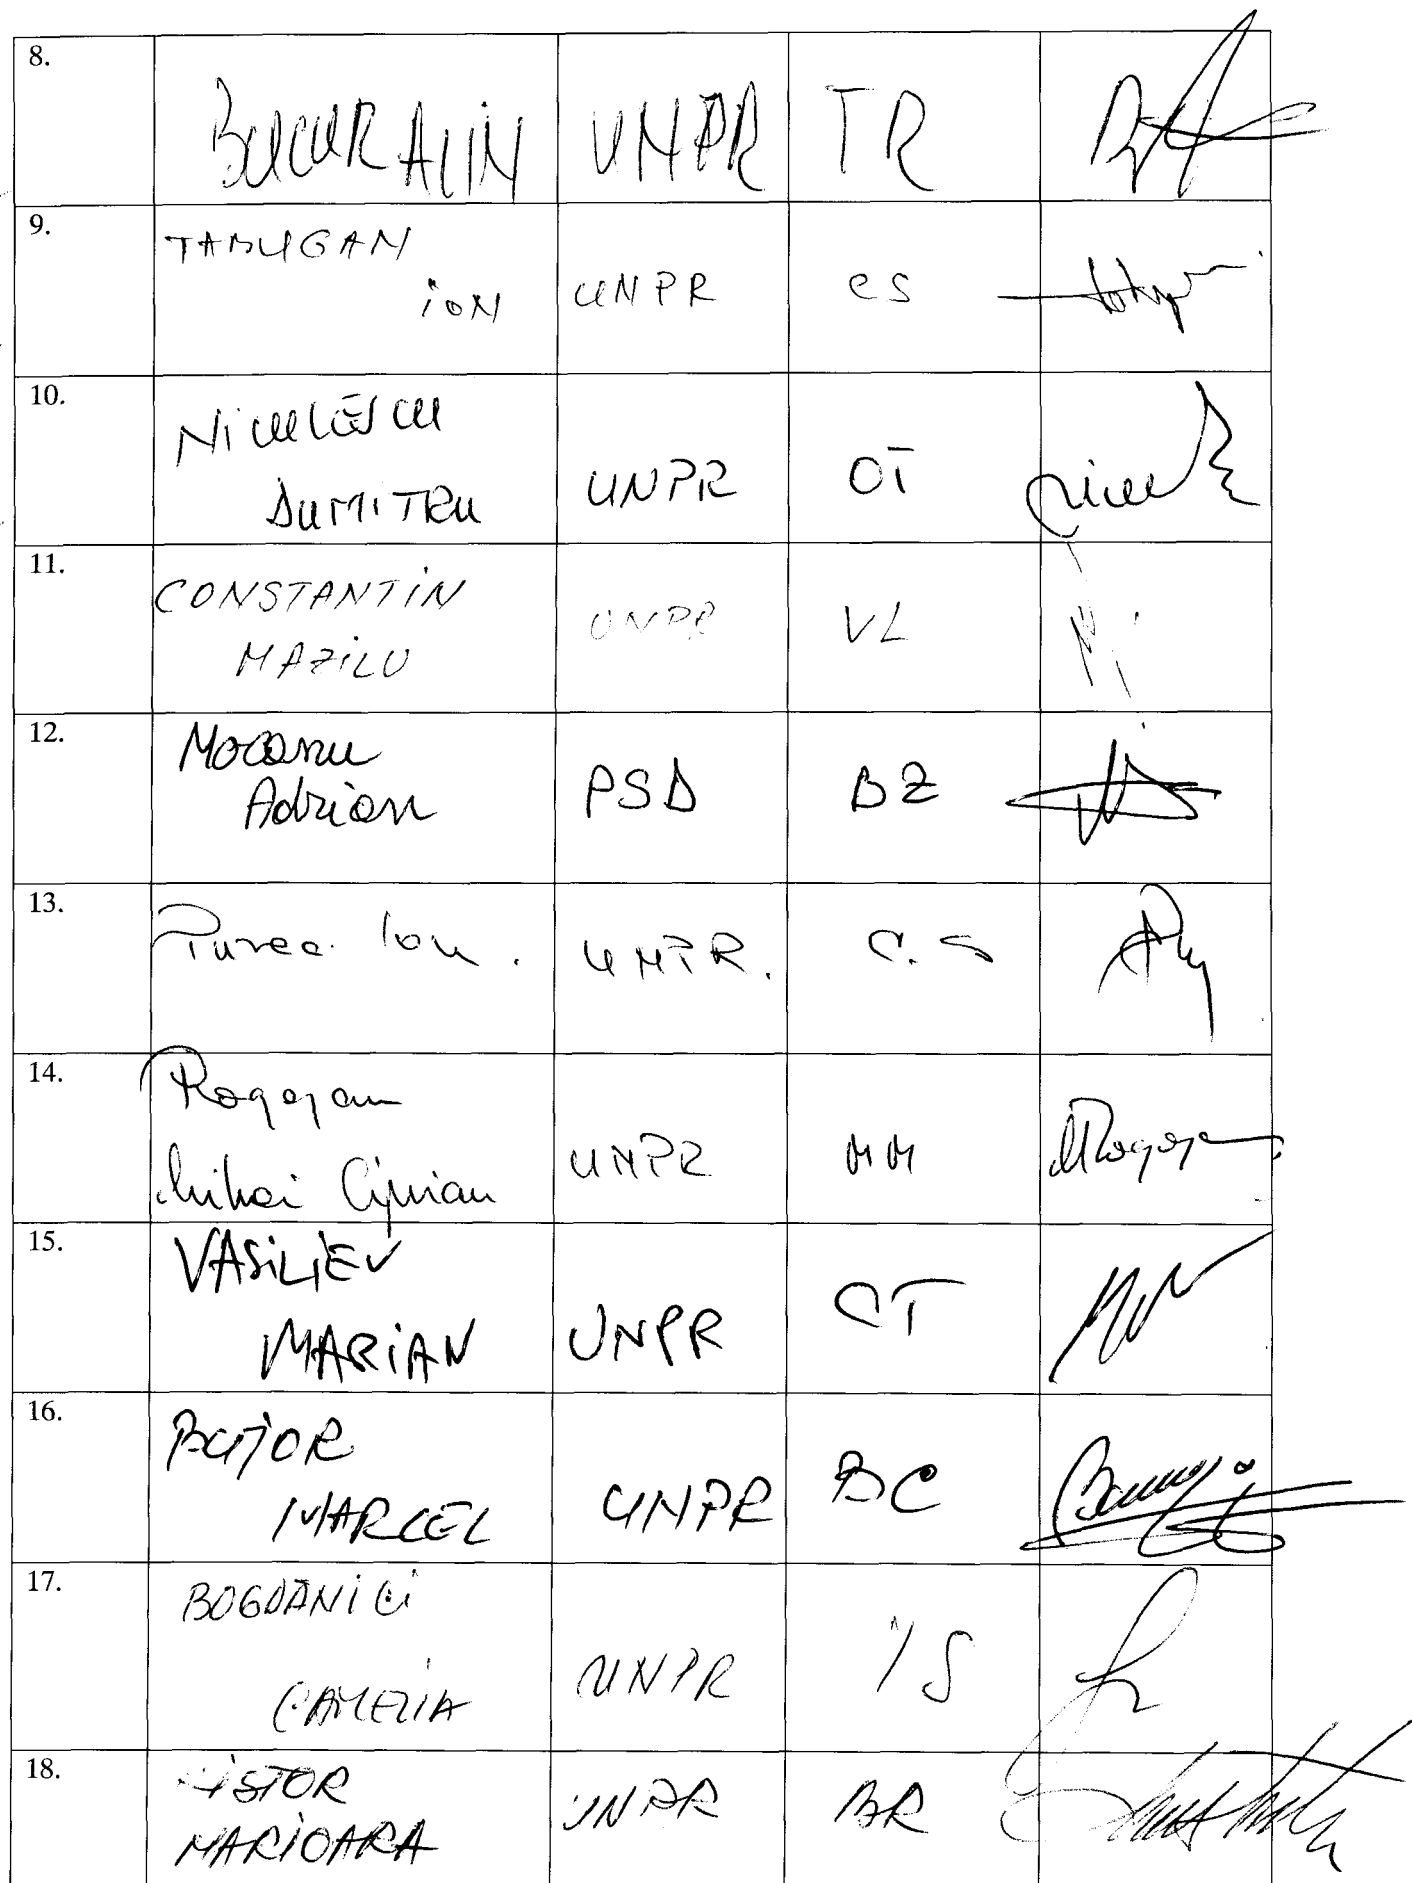 8.
BUCUR ALIN UNPR TR
9.
TABUGAN
ION UNPR CS
10.
NICULESCU
DUMITRU UNPR OT
11.
CONSTANTIN
MAZILU UNPR VL
12.
Mocanu
Adrian PSD BZ
13.
Purec Ion. UNPR. C.S
14.
Rogojan
Mihai Ciprian UNPR MM
15.
VASILIEV
MARIAN UNPR CT
16.
BUJOR
MARCEL UNPR BC
17.
BOGDANICI
CAMELIA UNPR IS
18.
MARIOARA UNPR BR